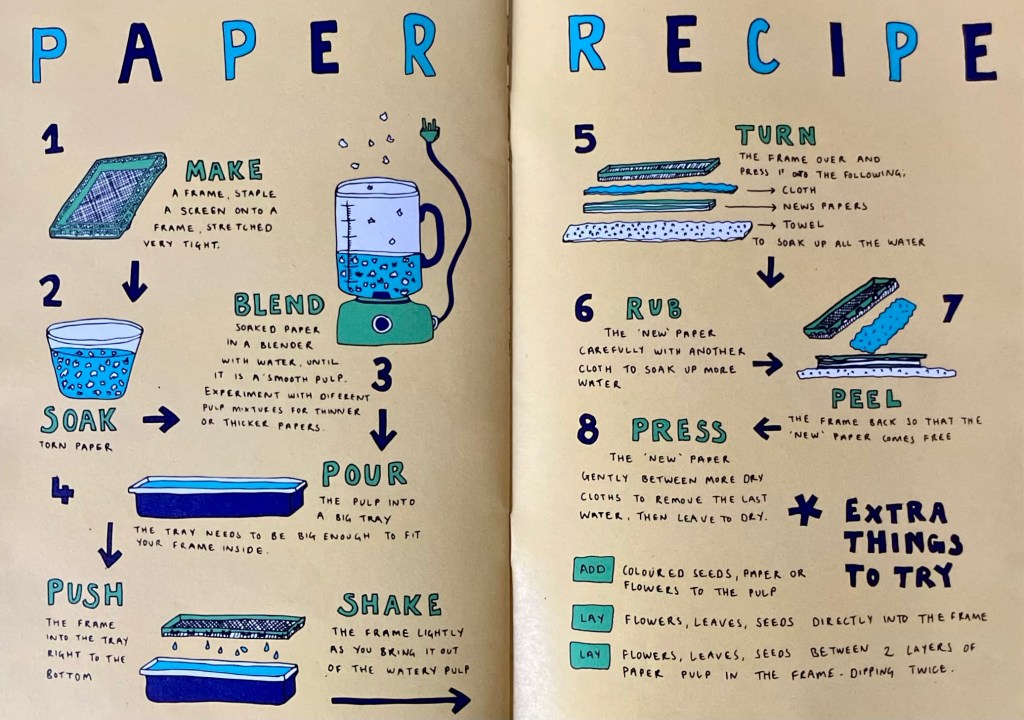 PAPER RECIPE
1
MAKE
A FRAME, STAPLE
A SCREEN ONTO A
FRAME, STRETCHED
VERY TIGHT.
2
SOAK
TORN PAPER
BLEND
SOAKED PAPER
IN A BLENDER
WITH WATER, UNTIL
IT IS A SMOOTH PULP.
3
EXPERIMENT WITH DIFERENT
PULP MIXTURES FOR THINNER
OR THICKER PAPERS.
4
POUR
THE PULP INTO
A BIG TRAY
THE TRAY NEEDS TO BE BIG ENOUGH TO FIT
YOUR FRAME INSIDE.
PUSH
THE FRAME
INTO THE TRAY
RIGHT TO THE
BOTTOM
SHAKE
THE FRAME LIGHTLY
AS YOU BRING IT OUT
OF THE WATERY PULP
5
TURN
THE FRAME OVER AND
PRESS IT ONTO THE FOLLOWING;
CLOTH
NEWS PAPERS
TOWEL
TO SOAK UP ALL THE WATER
6
RUB
THE 'NEW' PAPER
CAREFULLY WITH ANOTHER
CLOTH TO SOAK UP MORE
WATER
7
PEEL
THE FRAME BACK SO THAT THE
'NEW' PAPER COMES FREE
8
PRESS
THE 'NEW' PAPER
GENTLY BETWEEN MORE DRY
CLOTHS TO REMOVE THE LAST
WATER, THEN LEAVE TO DRY.
* EXTRA
THINGS
TO TRY
ADD COLOURED SEEDS, PAPER OR
FLOWERS TO THE PULP
LAY FLOWERS, LEAVES, SEEDS DIRECTLY INTO THE FRAME
LAY FLOWERS, LEAVES, SEEDS BETWEEN 2 LAYERS OF
PAPER PULP IN THE FRAME - DIPPING TWICE.